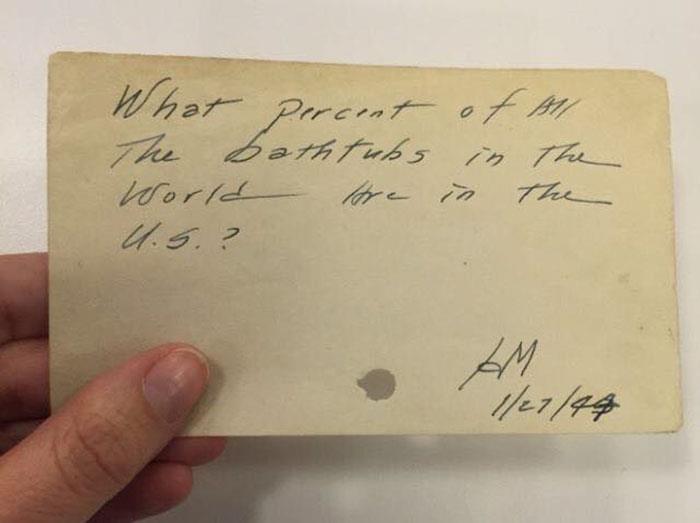 What percent of All
The bathtubs in the
World Are in the
U.S.?
1/27/44